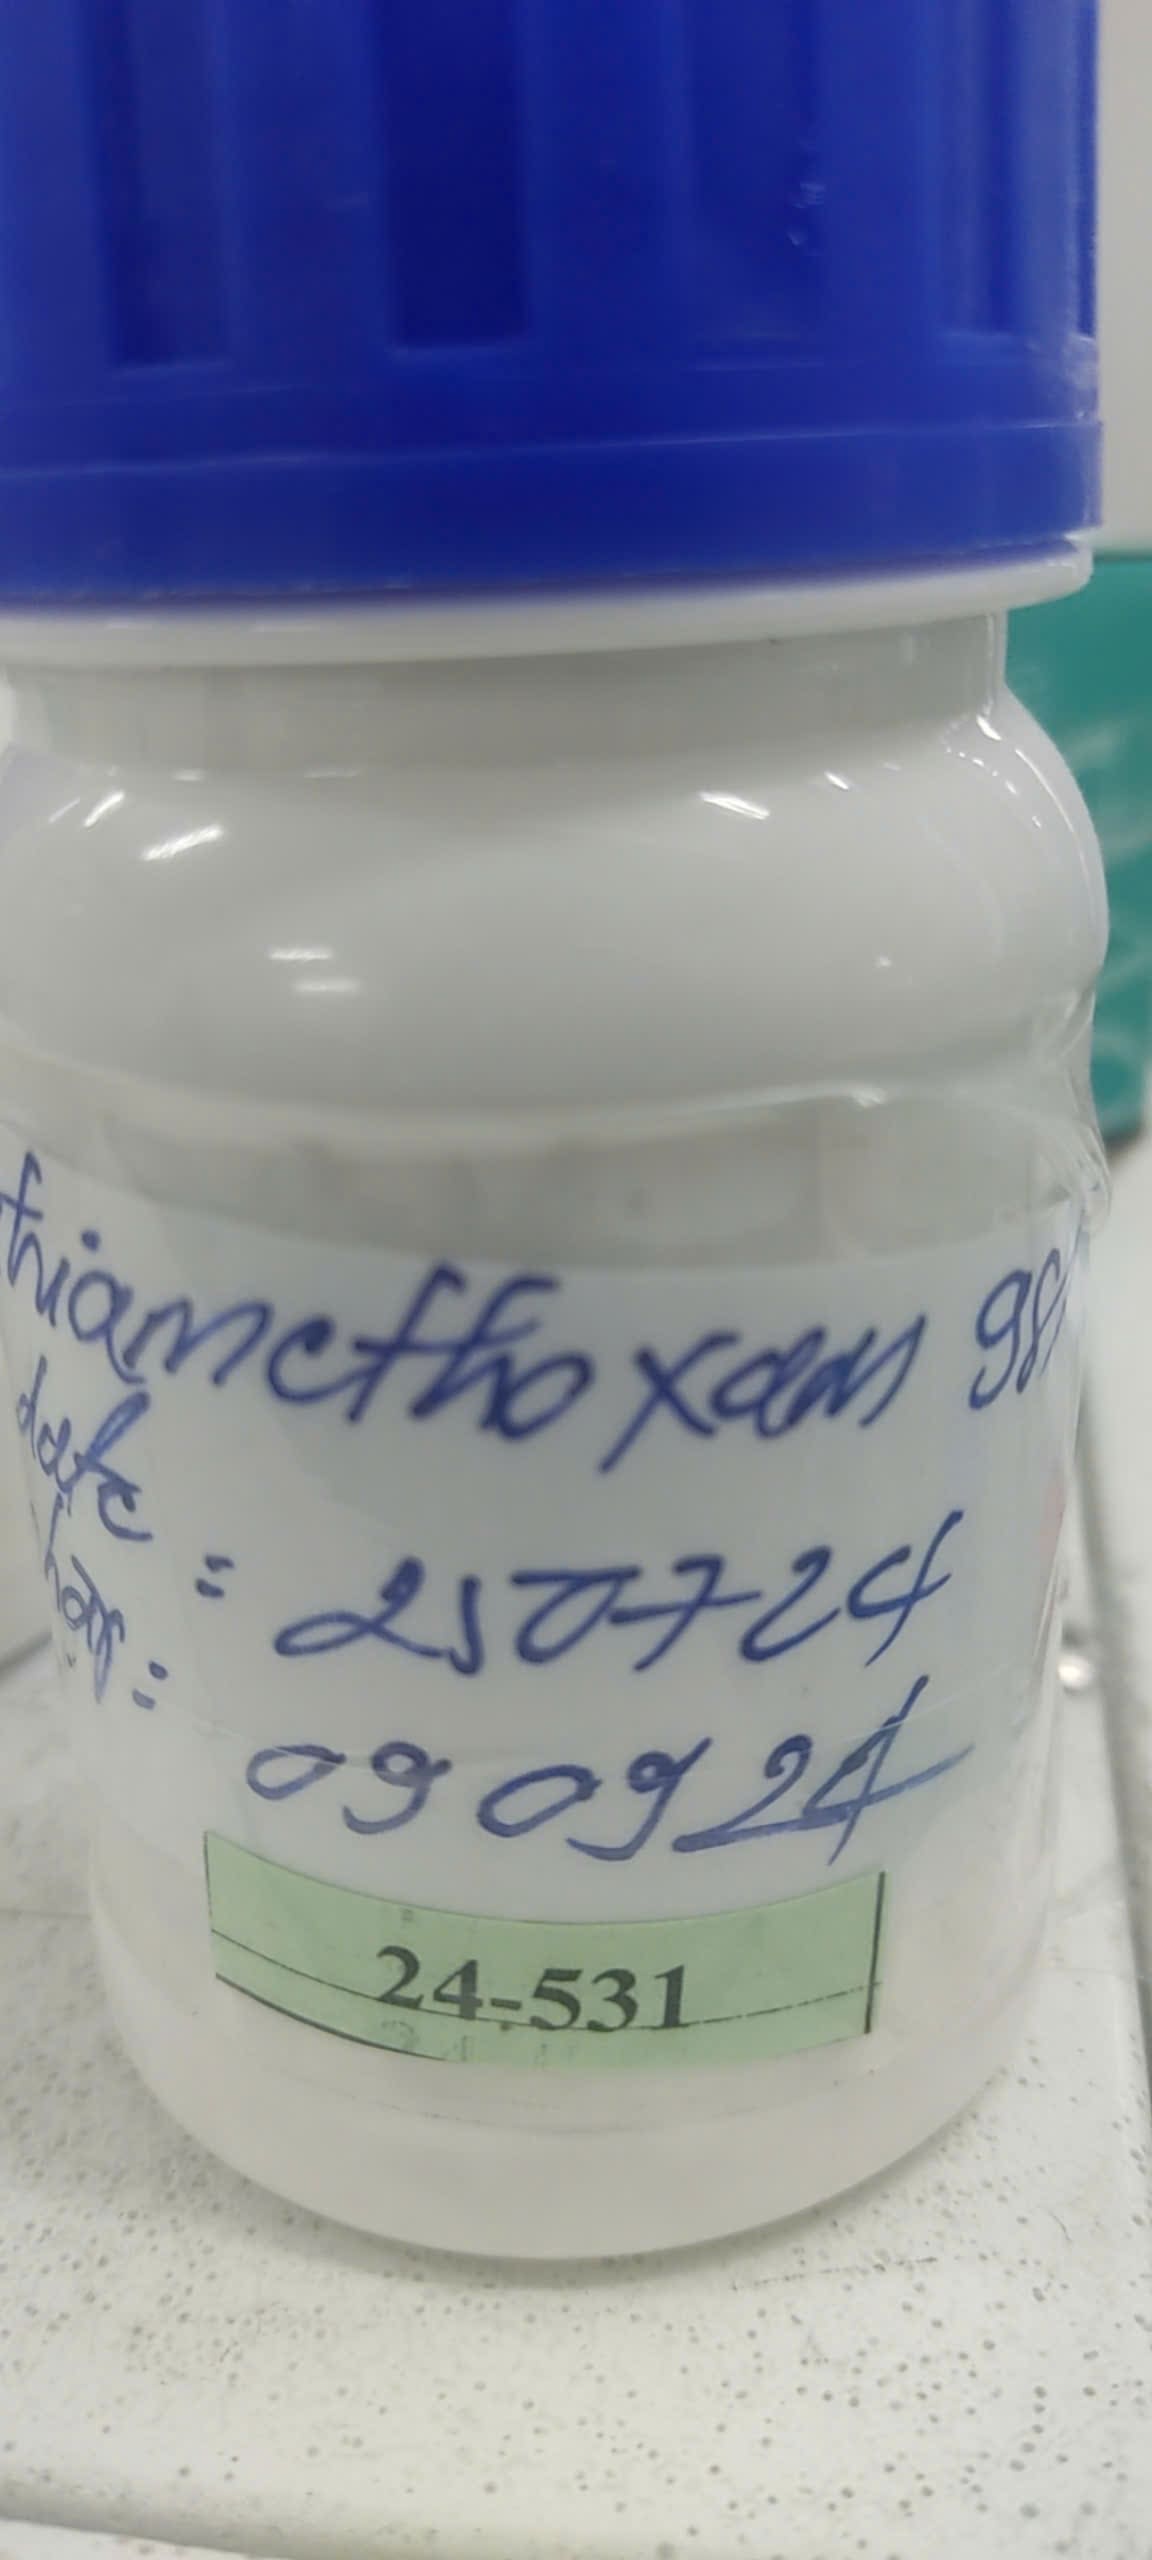 thiamethoxam 98%
date = 250724
: 090924
24-531